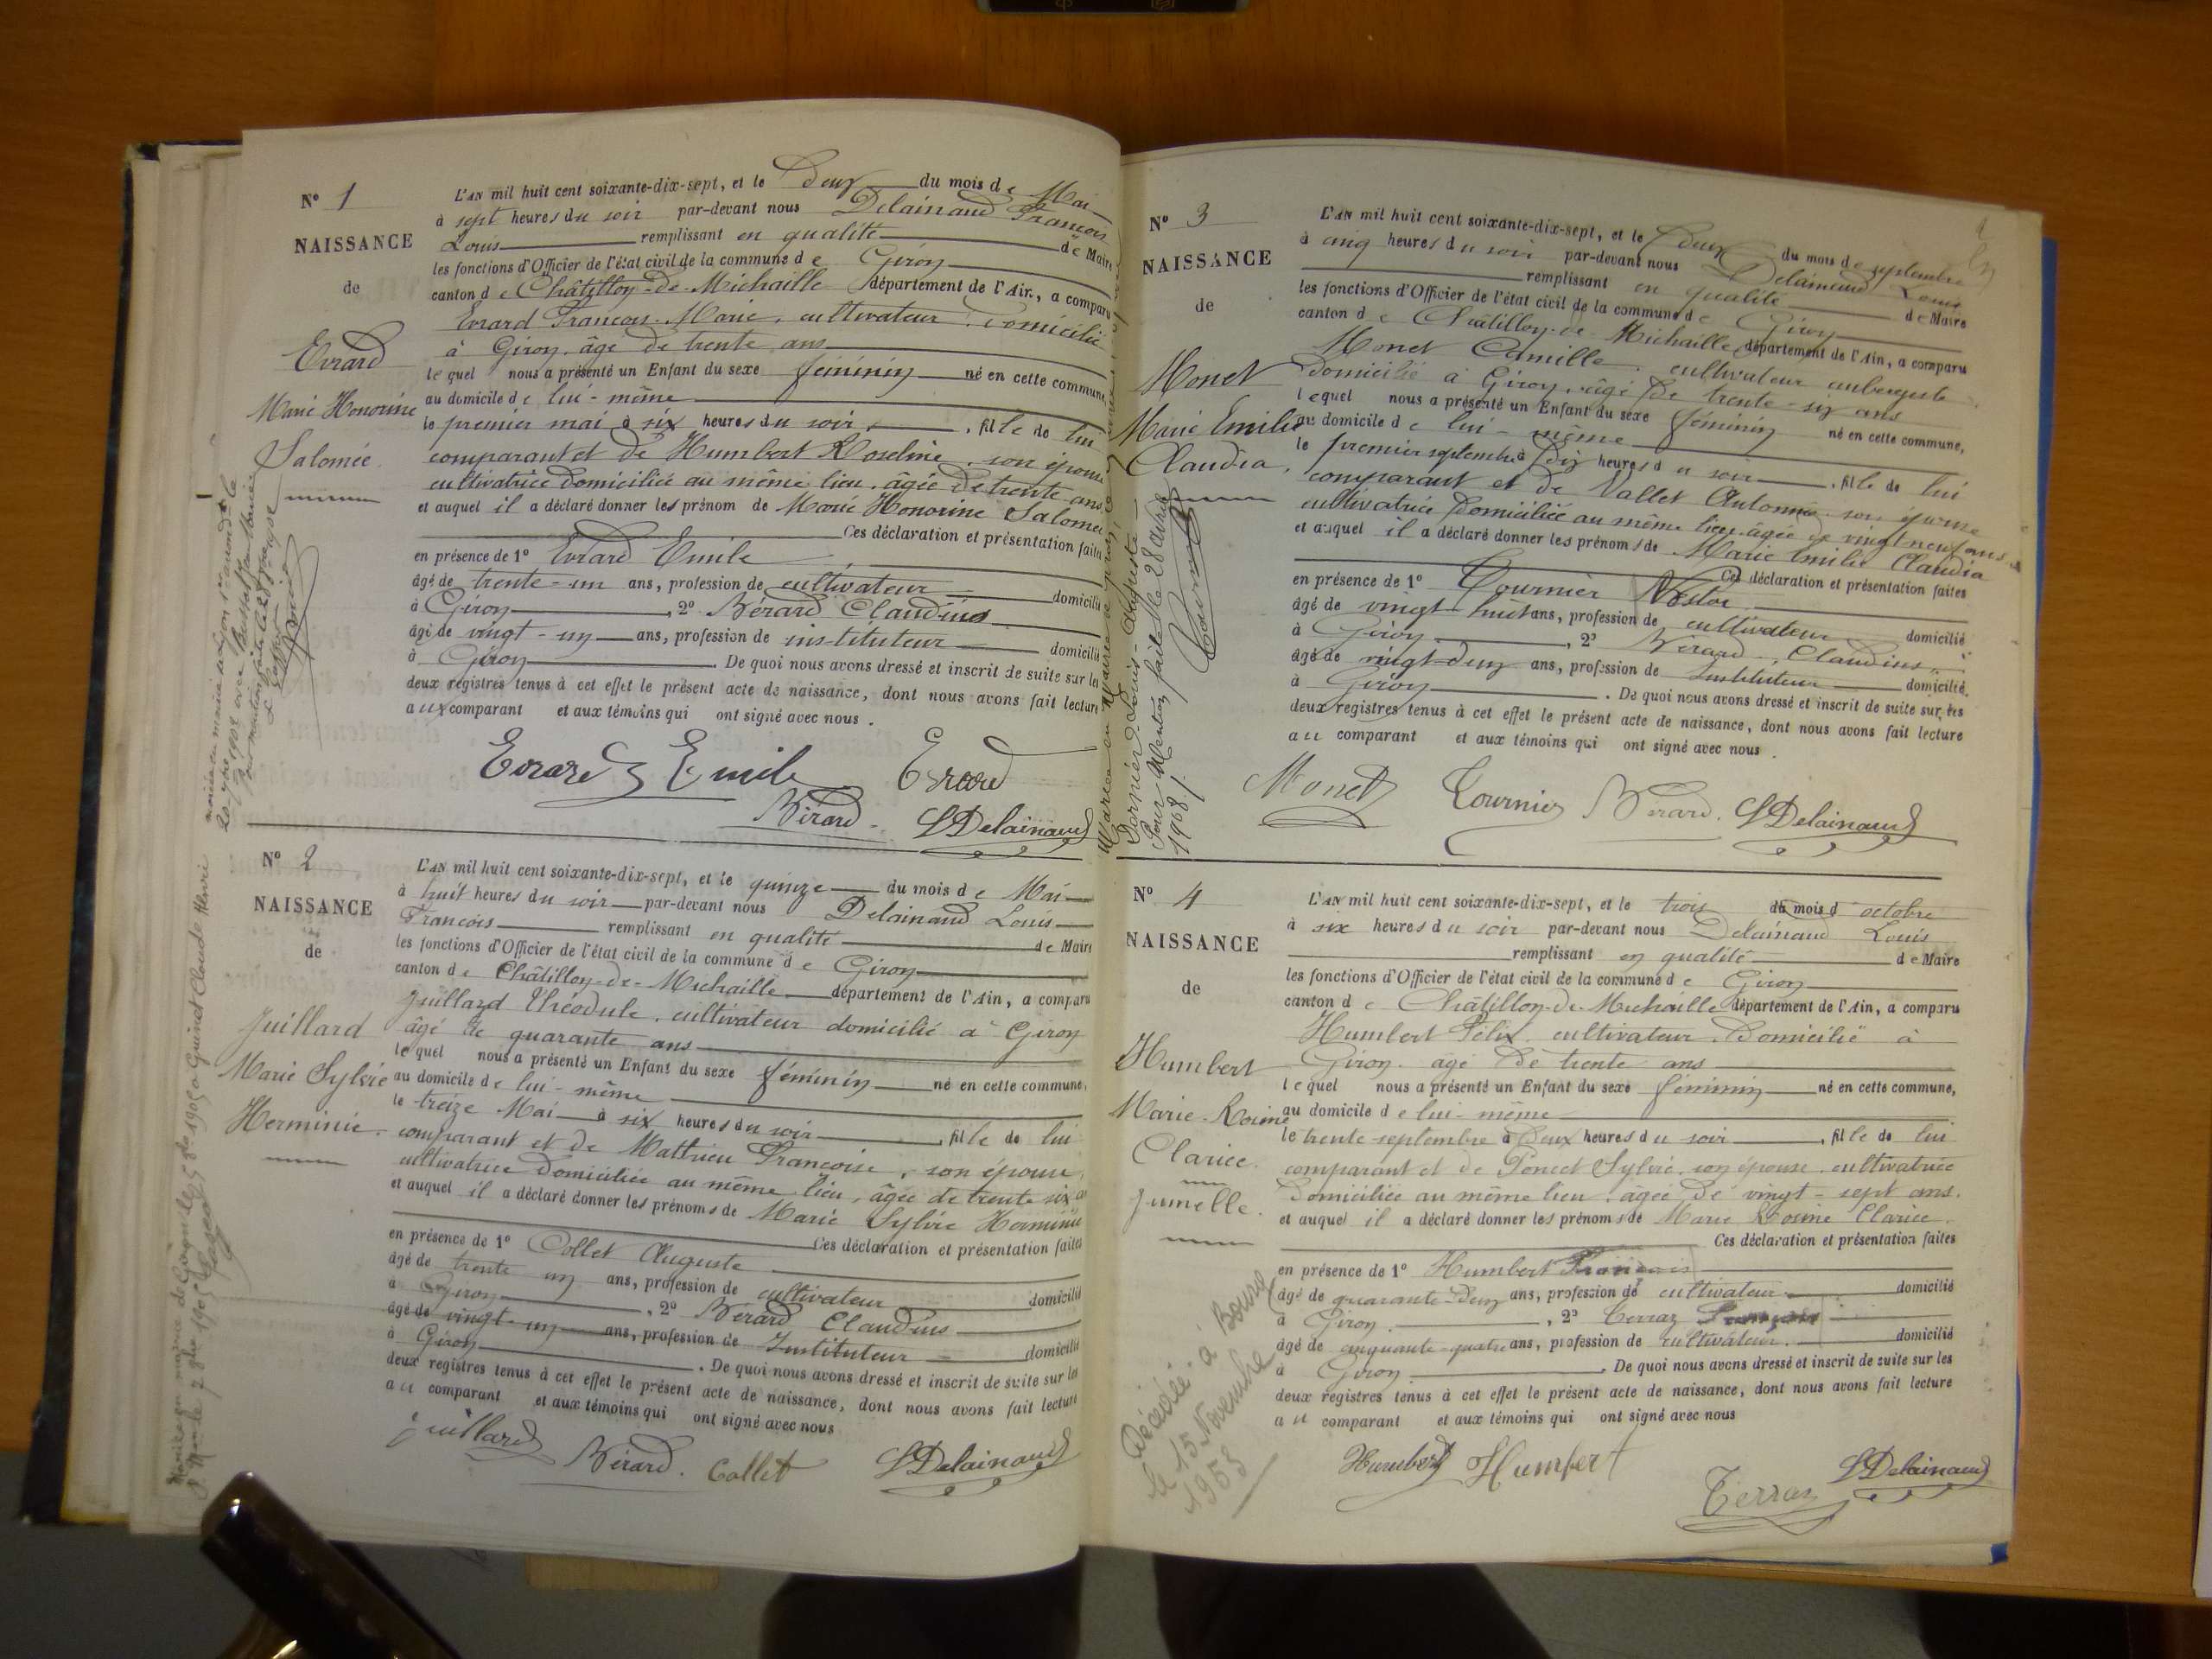 N° 1
NAISSANCE
de
Evrard
Marie Honorine
Salomée
L'AN mil huit cent soixante-dix-sept, et le Deux du mois de Mai
à sept heures du soir par-devant nous Delainaud François
Louis remplissant en qualité de Maire
les fonctions d'Officier de l'état civil de la commune de Giron
canton de Châtillon-de-Michaille département de l'Ain, a comparu
Evrard François-Marie, cultivateur, domicilié
à Giron, âgé de trente ans
lequel nous a présenté un Enfant du sexe féminin né en cette commune
au domicile de lui-même
le premier mai à six heures du soir, fille de lui
comparant et de Humbert Roseline, son épouse
cultivatrice domiciliée au même lieu, âgée de trente ans
et auquel il a déclaré donner les prénom de Marie Honorine Salomée
Ces déclaration et présentation faites
en présence de 1° Evrard Emile
âgé de trente-un ans, profession de cultivateur domicilié
à Giron, 2° Bérard Claudius
âgé de vingt-un ans, profession de instituteur domicilié
à Giron. De quoi nous avons dressé et inscrit de suite sur les
deux registres tenus à cet effet le présent acte de naissance, dont nous avons fait lecture
aux comparant et aux témoins qui ont signé avec nous.
Evrard Emile Evrard
Bérard LDelainaud
N° 2
NAISSANCE
de
Juillard
Marie Sylvie
Herminie.
L'AN mil huit cent soixante-dix-sept, et le quinze du mois de Mai
à huit heures du soir par-devant nous Delainaud Louis
François remplissant en qualité de Maire
les fonctions d'Officier de l'état civil de la commune de Giron
canton de Châtillon-de-Michaille département de l'Ain, a comparu
Juillard Théodule, cultivateur domicilié à Giron
âgé de quarante ans
lequel nous a présenté un Enfant du sexe féminin né en cette commune,
au domicile de lui-même
le treize Mai à six heures du soir, fille de lui
comparant et de Mathieu Françoise, son épouse,
cultivatrice domiciliée au même lieu, âgée de trente six
et auquel il a déclaré donner les prénoms de Marie Sylvie Herminie
Ces déclaration et présentation faites
en présence de 1° Collet Auguste
âgé de trente un ans, profession de cultivateur domicilié
à Giron, 2° Bérard Claudius
âgé de vingt-un ans, profession de Instituteur domicilié
à Giron. De quoi nous avons dressé et inscrit de suite sur les
deux registres tenus à cet effet le présent acte de naissance, dont nous avons fait lecture
au comparant et aux témoins qui ont signé avec nous
Juillard Bérard. Collet LDelainaud
N° 3
NAISSANCE
de
Monet
Marie Emilie
Claudia.
L'AN mil huit cent soixante-dix-sept, et le deux du mois de septembre
à cinq heures du soir par-devant nous Delainaud Louis
remplissant en qualité de Maire
les fonctions d'Officier de l'état civil de la commune de Giron
canton de Châtillon-de-Michaille département de l'Ain, a comparu
Monet Camille, cultivateur aubergiste
domicilié à Giron, âgé de trente-six ans
lequel nous a présenté un Enfant du sexe féminin né en cette commune,
au domicile de lui-même
le premier septembre à dix heures du soir, fille de lui
comparant et de Vallet son épouse
cultivatrice domiciliée au même lieu âgée de vingt-neuf ans
et auquel il a déclaré donner les prénoms de Marie Emilie Claudia
Ces déclaration et présentation faites
en présence de 1° Tournier Nestor
âgé de vingt-huit ans, profession de cultivateur domicilié
à Giron, 2° Bérard, Claudius
âgé de vingt-deux ans, profession de Instituteur domicilié.
à Giron. De quoi nous avons dressé et inscrit de suite sur les
deux registres tenus à cet effet le présent acte de naissance, dont nous avons fait lecture
au comparant et aux témoins qui ont signé avec nous.
Monet Tournier Bérard. LDelainaud
N° 4
NAISSANCE
de
Humbert
Marie-Rosine
Clarice.
Jumelle.
L'AN mil huit cent soixante-dix-sept, et le trois du mois d octobre
à six heures du soir par-devant nous Delainaud Louis
remplissant en qualité de Maire
les fonctions d'Officier de l'état civil de la commune de Giron
canton de Châtillon-de-Michaille département de l'Ain, a comparu
Humbert Félix, cultivateur, domicilié à
Giron, âgé de trente ans
lequel nous a présenté un Enfant du sexe féminin né en cette commune,
au domicile de lui-même
le trente septembre à deux heures du soir, fille de lui
comparant et de Poncet Sylvie, son épouse, cultivatrice
domiciliée au même lieu, âgée de vingt-sept ans.
et auquel il a déclaré donner les prénoms de Marie Rosine Clarice.
Ces déclaration et présentation faites
en présence de 1° Humbert François
âgé de quarante-deux ans, profession de cultivateur domicilié
à Giron, 2° Terraz
âgé de cinquante-quatre ans, profession de cultivateur domicilié
à Giron. De quoi nous avons dressé et inscrit de suite sur les
deux registres tenus à cet effet le présent acte de naissance, dont nous avons fait lecture
au comparant et aux témoins qui ont signé avec nous
Humbert Humbert Terraz LDelainaud
Décédée à Bourg
le 15 Novembre
1953